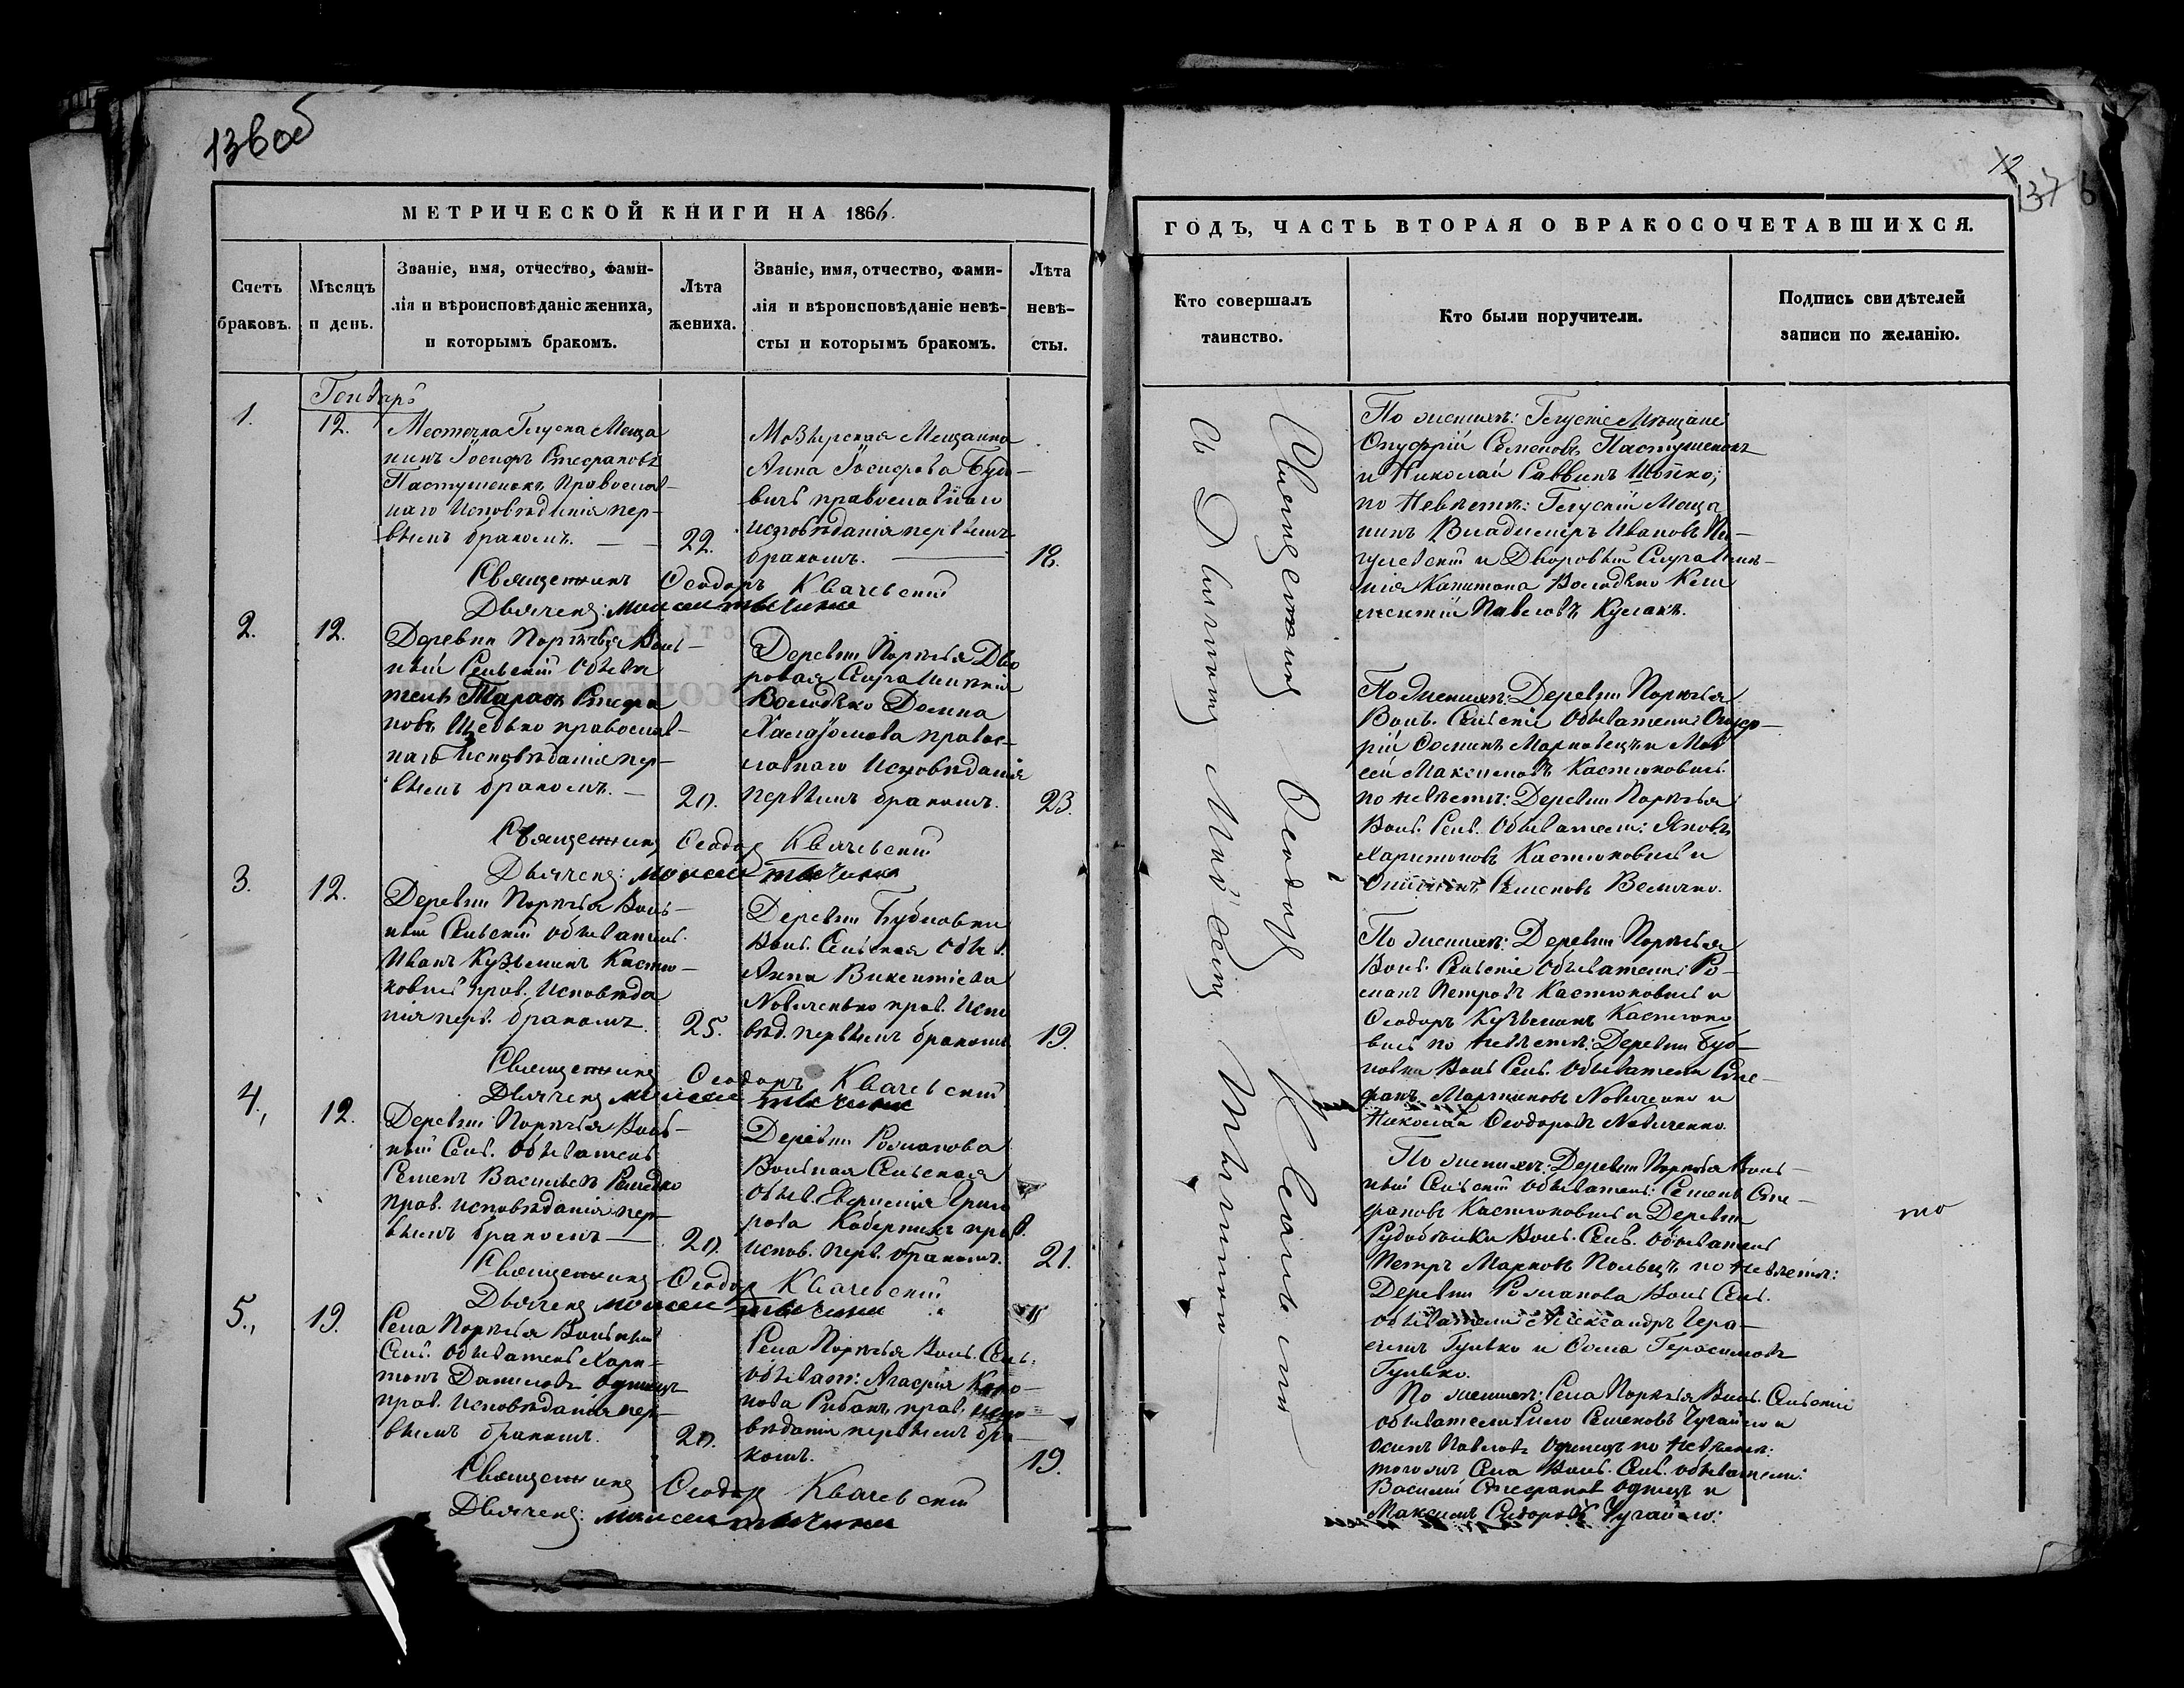 136 об
МЕТРИЧЕСКОЙ КНИГИ НА 1866.
Счетъ браковъ.
Мѣсяцъ и день.
Званіе, имя, отчество, фами-
лія и вѣроисповѣданіе жениха,
и которымъ бракомъ.
Лѣта
жениха.
Званіе, имя, отчество, фами-
лія и вѣроисповѣданіе невѣ-
сты и которымъ бракомъ.
Лѣта
невѣ-
сты.
Генварь
1.
12.
Местечка Глуска Меща
нинъ Іосифъ Стефановъ
Пастушенокъ Православ-
наго Исповѣданія пер-
вымъ бракомъ.
22.
Мозырская Мещанка
Анна Іосифова
православнаго
исповѣданія первымъ
бракомъ.
18.
Священникъ Ѳеодоръ Квачевскій
Дьячекъ: Моисей Тычина
2.
12.
Деревни Порѣчья Воль-
ный Сельскій Обыва
тель Тарасъ Стефа
новъ Шедько православ-
наго Исповѣданія пер-
вымъ бракомъ.
20.
Деревни Порѣчья Дво
ровая Слуга Имѣнія
Володько Домна
Харлампова правос-
лавнаго Исповѣданія
первымъ бракомъ.
23.
Священникъ Ѳеодоръ Квачевскій
Дьячекъ: Моисей Тычина
3.
12.
Деревни Порѣчья Воль-
ный Сельскій обыватель
Иванъ Кузьминъ Кастю-
ковичъ прав. Исповѣда
нія перв. бракомъ.
25.
Деревни Бубновки
Воль. Сельская обыв.
Анна Викентіева
Новиченько прав. Испо
вѣд. первымъ бракомъ
19.
Священникъ Ѳеодоръ Квачевскій
Дьячекъ Моисей Тычина
4.,
12.
Деревни Порѣчья Воль-
ный Сель. обыватель
Семенъ Васильевъ
прав. исповѣданія пер-
вымъ бракомъ
20.
Деревни Романова
Вольная Сельская
обыв. Евфимія Григо
рова прав.
испов. перв. бракомъ.
21.
Священникъ Ѳеодоръ Квачевскій
Дьячекъ Моисей Тычина
5.,
19.
Села Порѣчья Вольный
Сель. обыватель Хари-
тонъ Даниловъ Одинецъ
прав. Исповѣданія пер-
вымъ бракомъ.
20.
Села Порѣчья Воль. Сель.
обыват: Агафія
Рыбакъ прав. испо-
вѣданія первымъ бра-
комъ.
19.
Священникъ Ѳеодоръ Квачевскій
Дьячекъ: Моисей Тычина
137
ГОДЪ, ЧАСТЬ ВТОРАЯ О БРАКОСОЧЕТАВШИХСЯ.
Кто совершалъ
таинство.
Кто были поручители.
Подпись свидѣтелей
записи по желанію.
Священникъ Ѳеодоръ Квачевскій
Съ Дьячкомъ Моисеемъ Тычиною
По женихѣ: Глускіе Мѣщане
Онуфрій Семеновъ Пастушенокъ
и Николай Саввинъ
по Невѣстѣ: Глускій Меща
нинъ Владимеръ Ивановъ
и Дворовый Слуга Имѣ-
нія Капитана Володько
Павловъ Куслакъ.
По Женихѣ: Деревни Порѣчья
Воль. Сельскіе Обыватели: Онуф-
рій Ѳоминъ и Мои
сей Максимовъ Кастюковичъ.
по Невѣстѣ: Деревни Порѣчья
Воль. Сель. Обыватели: Яковъ
Харитоновъ Кастюковичъ и
Семеновъ Величко.
По Женихѣ: Деревни Порѣчья
Воль. Сельскіе Обыватели: Ро-
манъ Петровъ Кастюковичъ и
Ѳеодоръ Кузьминъ Кастюко
вичъ по Невѣстѣ: Деревни Буб-
новки Воль Сель. Обыватели Сте-
фанъ Мартиновъ Новиченко и
Николай Ѳеодоровъ Новиченко
По женихѣ: Деревни Порѣчья Воль-
ный Сельскій обыватель: Семенъ Сте-
фановъ Кастюковичъ и Деревни
Рудобѣлки Воль. Сель. обыватель
Петръ Марковъ по Невѣстѣ:
Деревни Романова Воль Сель.
обыватели Александръ Гера-
симъ Гулько и Ѳома Герасимовъ
Гулько.
По женихѣ: Села Порѣчья Воль. Сельскіе
обыватели: Сила Семеновъ Чугайло и
Осипъ Павловъ Одинецъ по Невѣстѣ:
тогожъ Села Воль. Сель. обыватели:
Василій Стефановъ Одинецъ и
Максимъ Сидоровъ Чугайло.